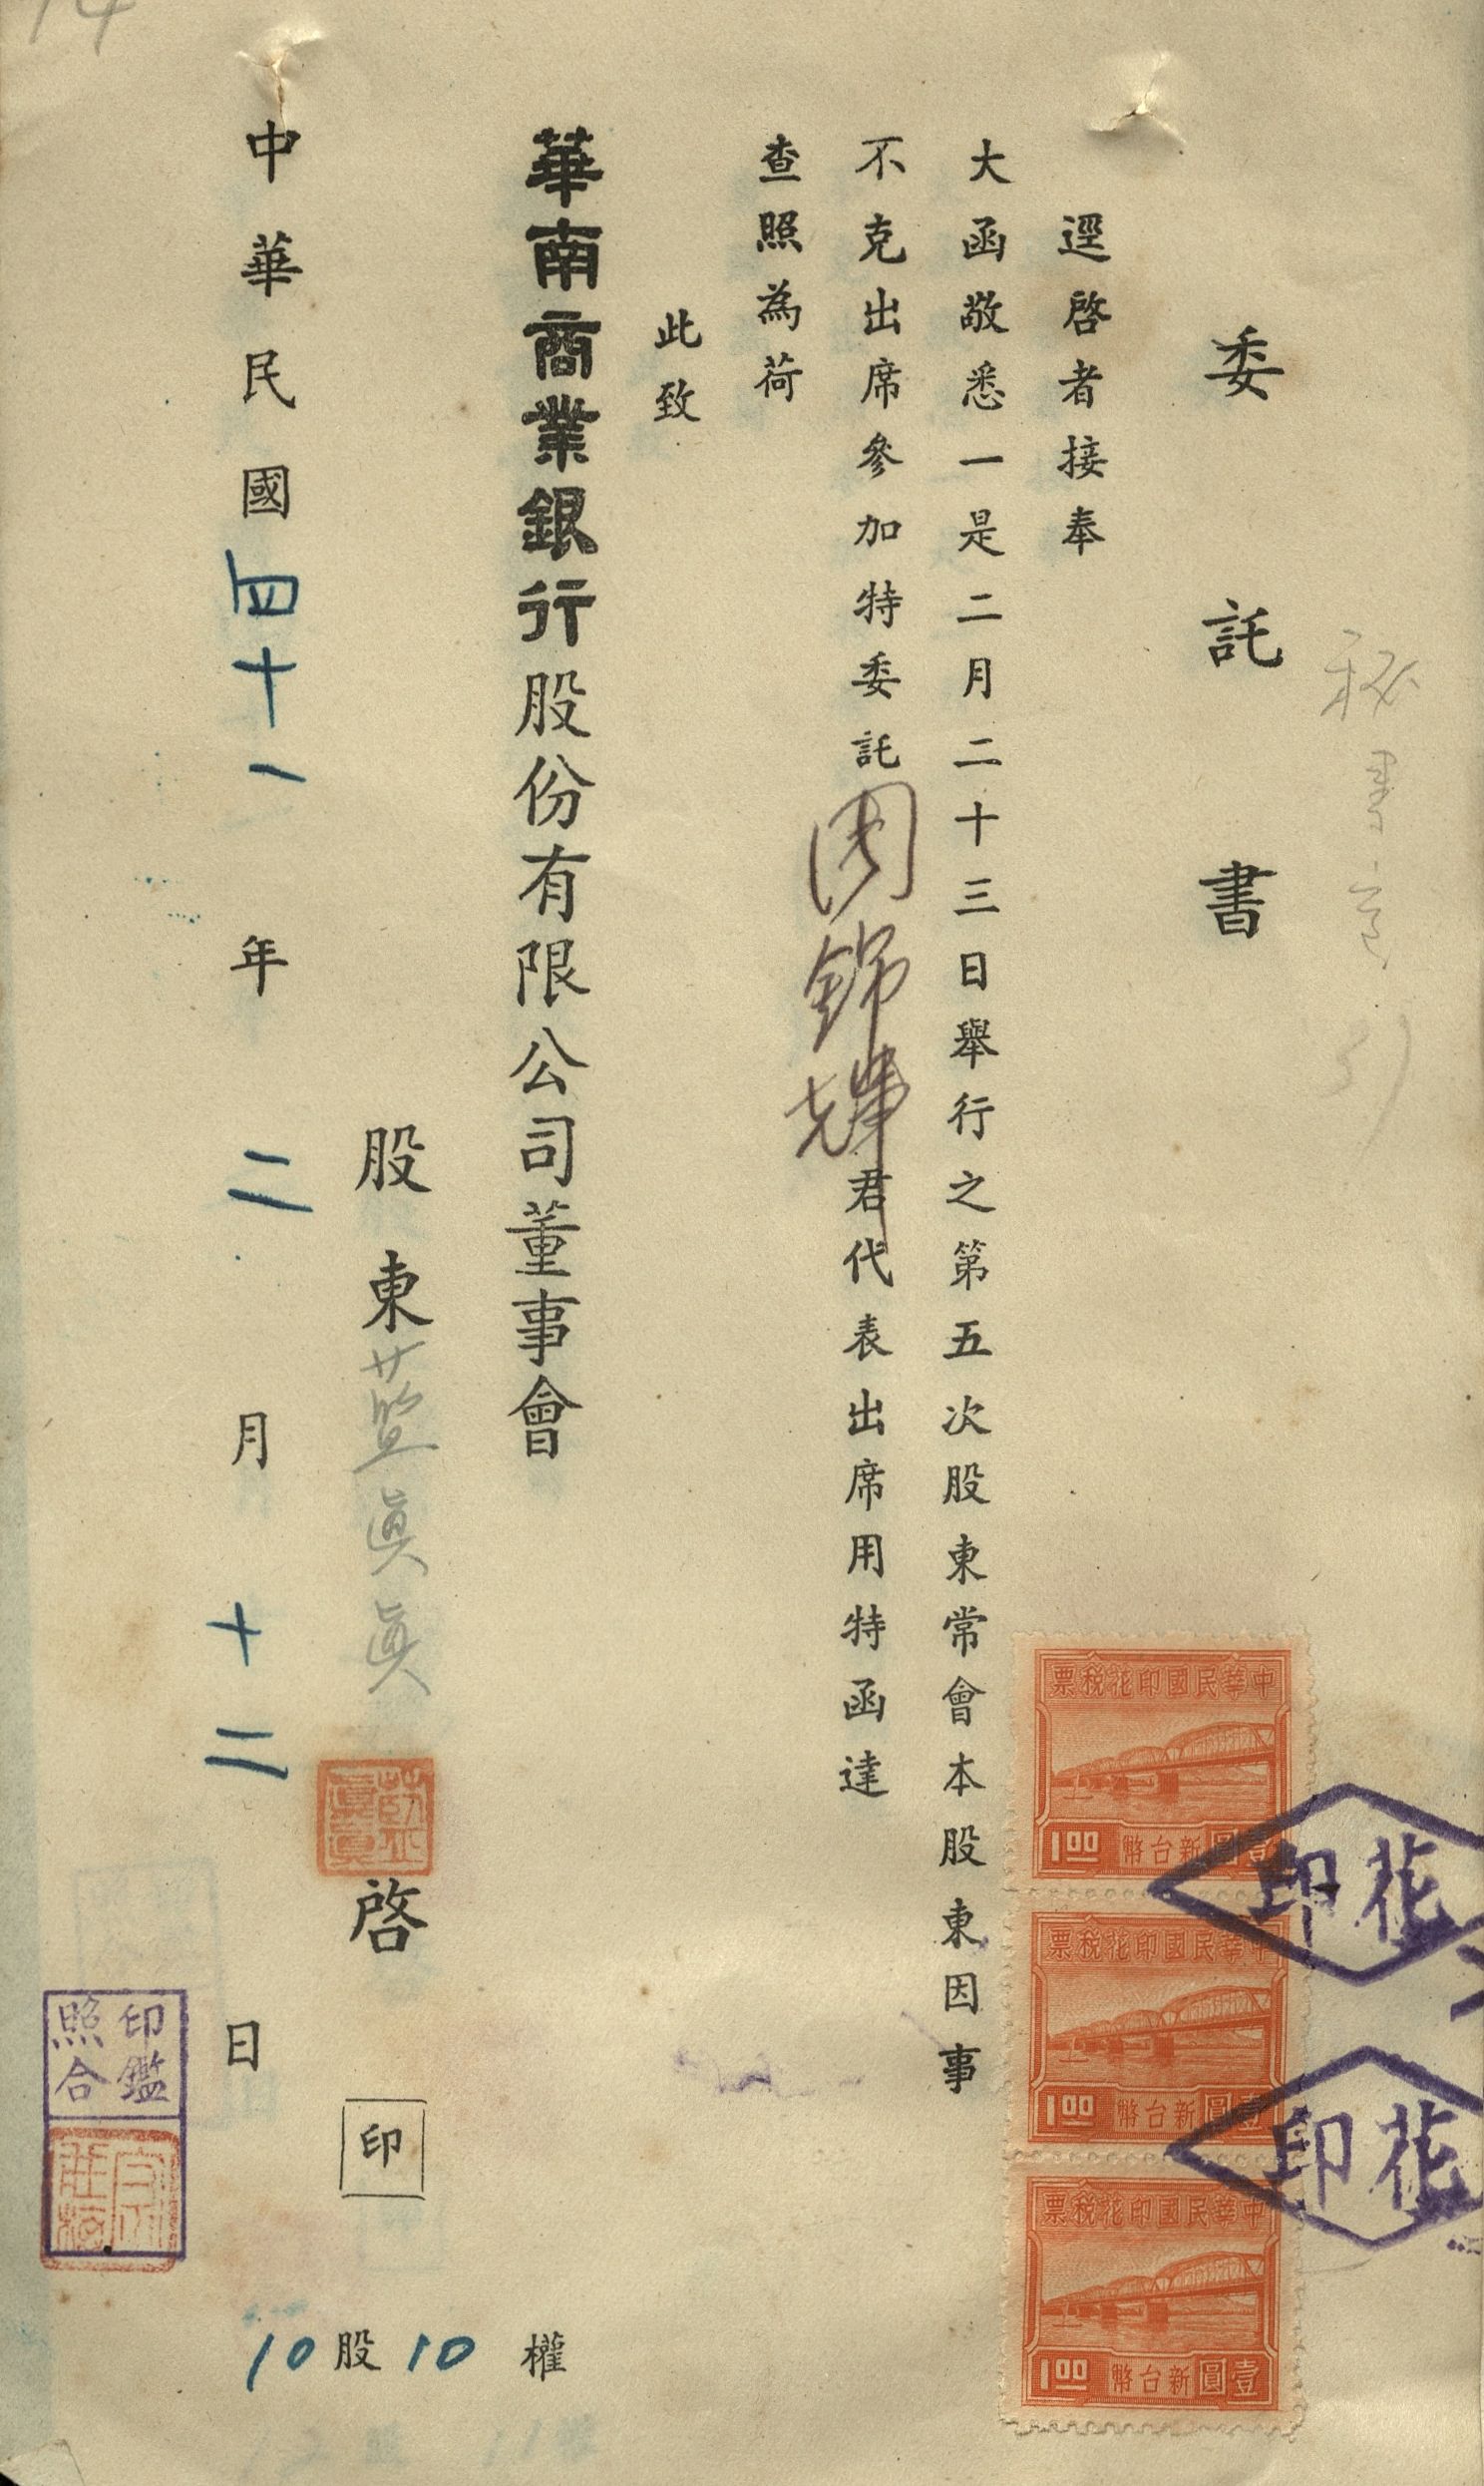 14
秘書室
委託書
逕啓者接奉
大函敬悉一是二月二十三日舉行之第五次股東常會本股東因事
不克出席參加特委託周錦輝君代表出席用特函達
查照為荷
此致
華南商業銀行股份有限公司董事會
股東藍真真啓 印
中華民國四十一年二月十二日
10股10權
藍真真
印鑑照合
中華民國印花稅票
1.00 新台幣壹圓
中華民國印花稅票
1.00 新台幣壹圓
中華民國印花稅票
1.00 新台幣壹圓
印花
印花